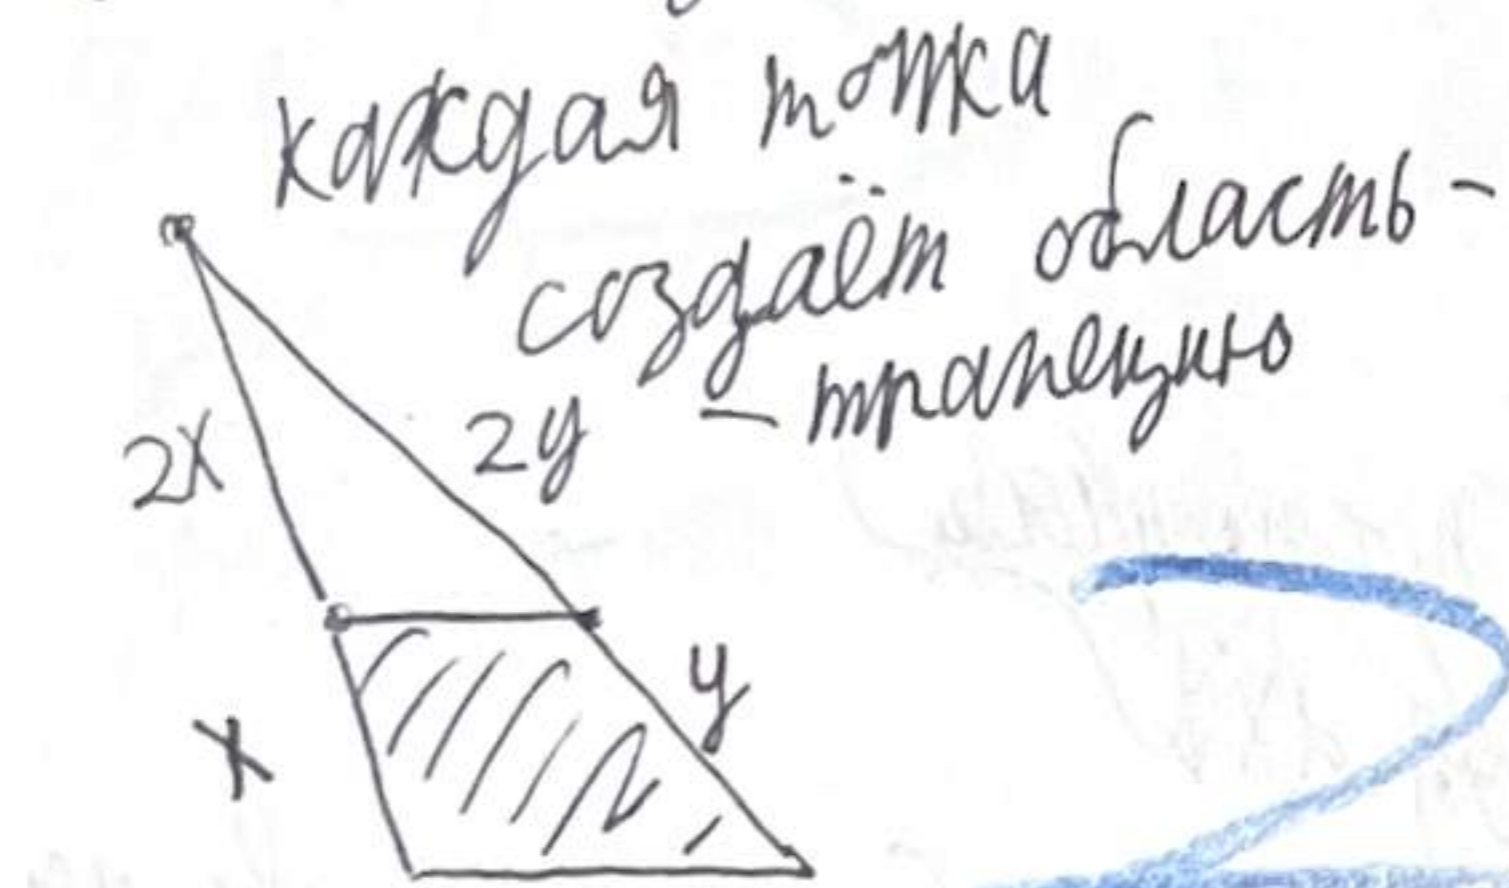 каждая точка
создаёт область -
- трапецию
2x
2y
y
x